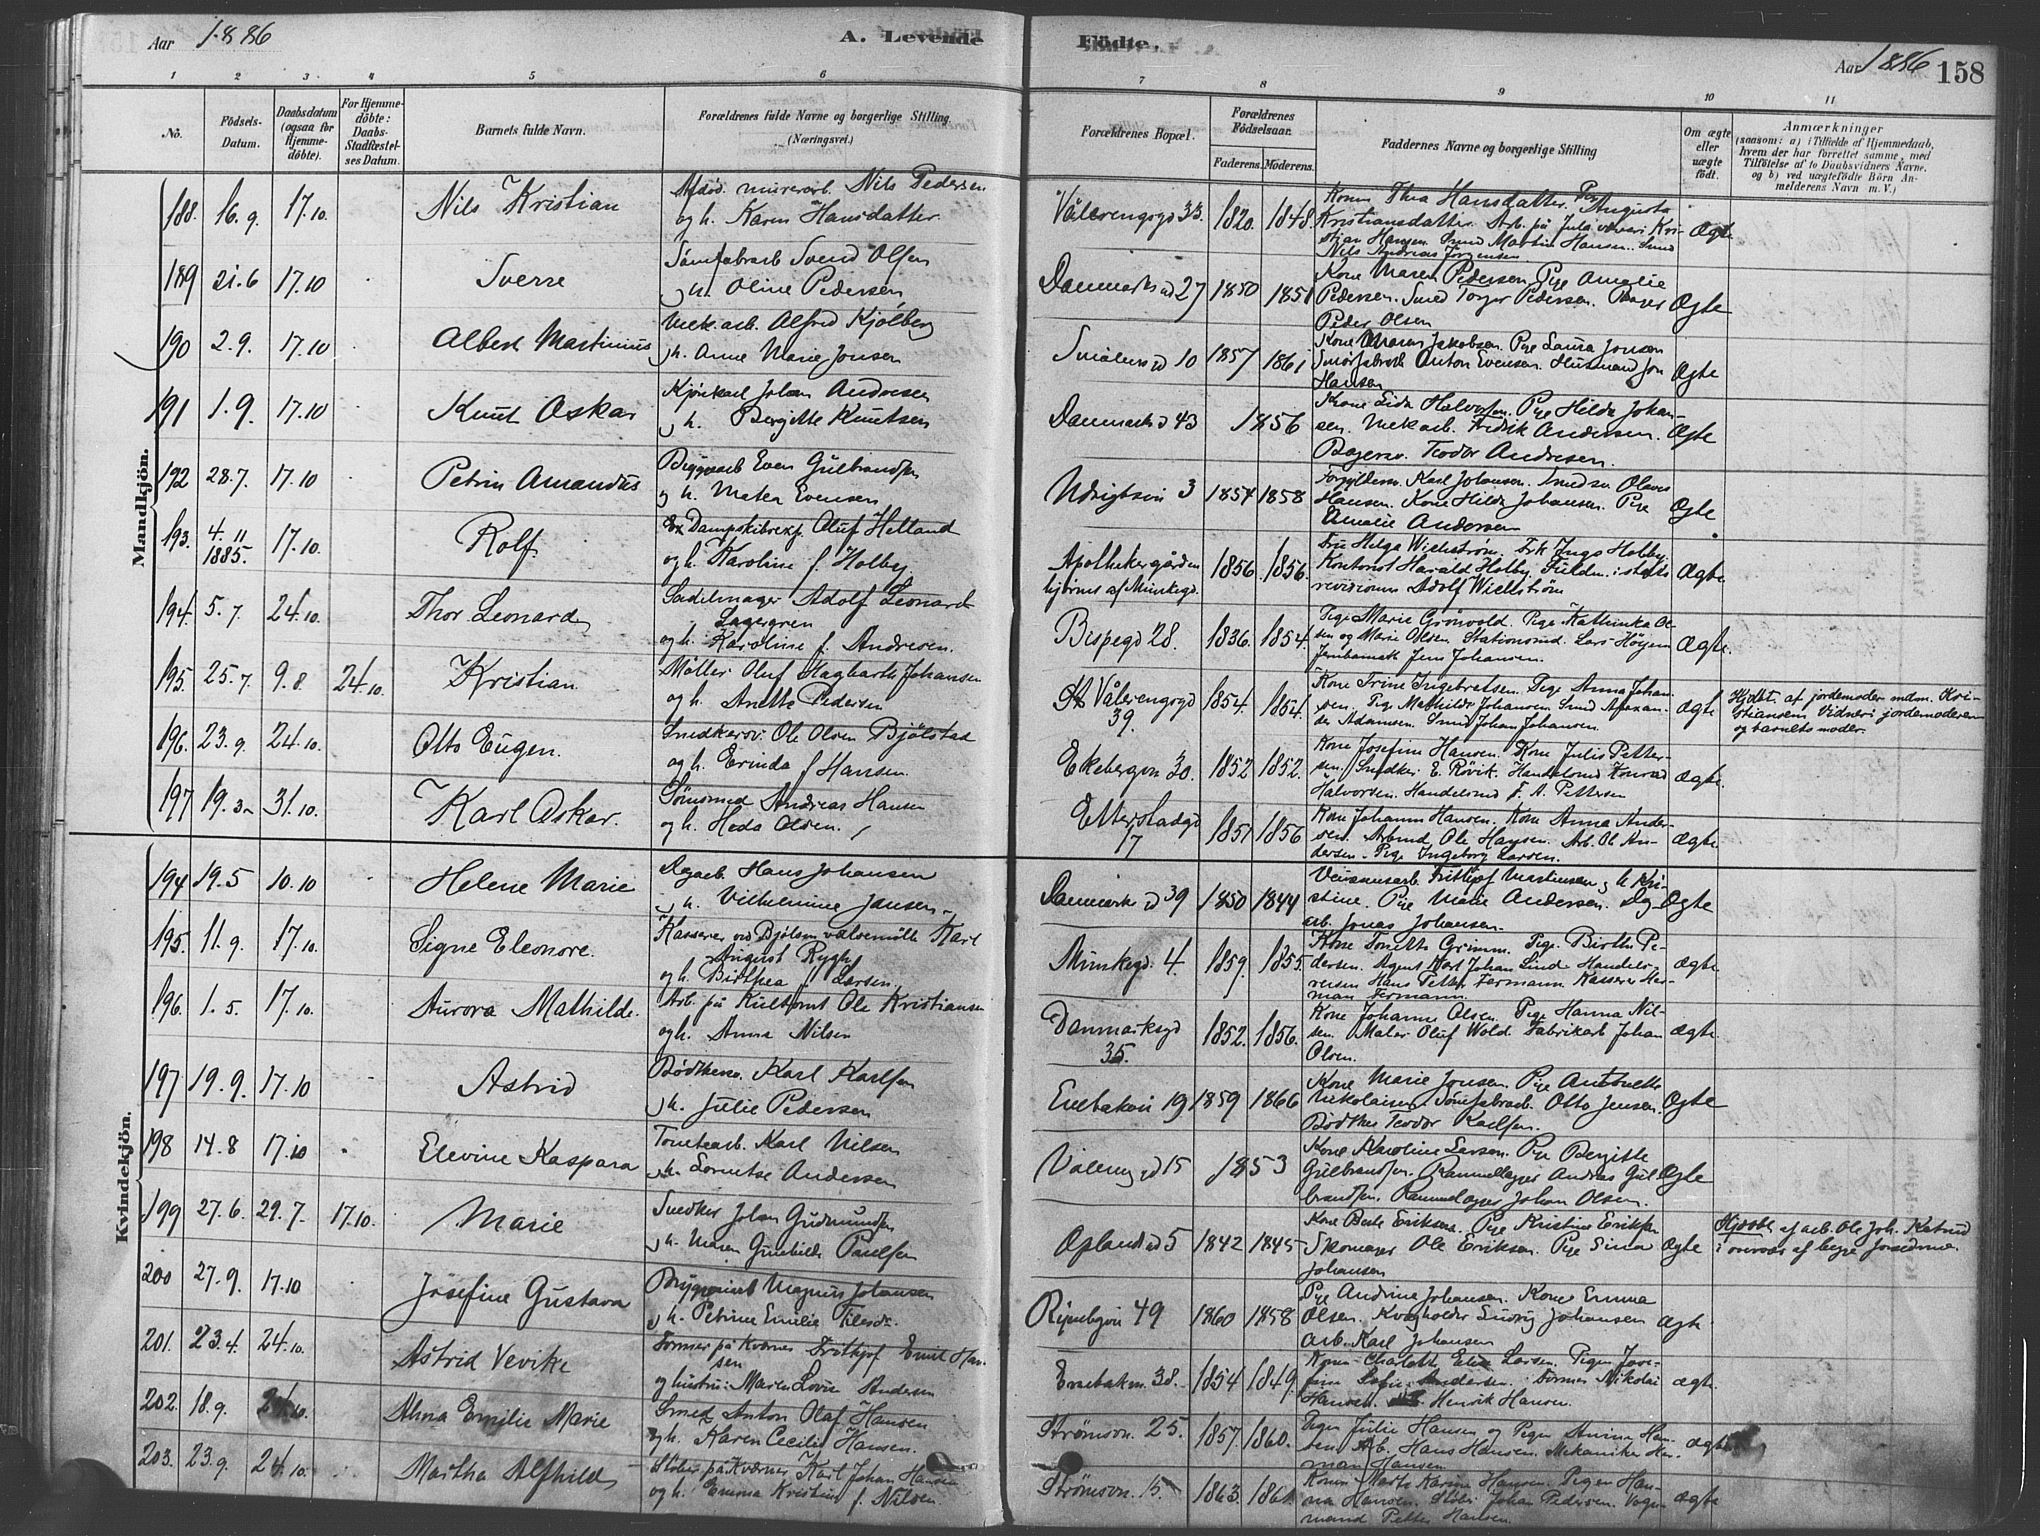 Aar 1886
A. Levende
Födte.
Aar 1886 158
1 2 3 4 5 6 7 8 9 10 11
No.
Födsels-Datum.
Daabsdatum (ogsaa for Hjemme-döbte).
For Hjemme-döbte: Daabs-Stadfæstel-ses Datum.
Barnets fulde Navn.
Forældrenes fulde Navne og borgerlige Stilling (Næringsvei.)
Forældrenes Bopæl.
Forældrenes Födselsaar.
Faderens. Moderens.
Faddernes Navne og borgerlige Stilling
Om ægte eller uægte födt.
Anmærkninger
(saasom: a) i Tilfælde af Hjemmedaab, hvem der har forrettet samme, med Tilföielse af to Daabsvidners Navne, og b) ved uægtefödte Börn An-melderens Navn m. V.)
Mandkjön.
188. 16.9. 17.10 Nils Kristian
Afdød murerarb. Nils Pedersen
og h. Karen Hansdatter
Vålerengsgd 33. 1820. 1848.
Kone Thea Hansdatter. Pige Augusta
Kristiansdatter. Arb. på Jula væveri Kri-
stian Hansen. Smed Martin Hansen. Smed
Nils Andreas Jørgensen.
Ægte
189 21.6 17.10 Sverre
Sømfabrarb Svend Olsen
og h. Oline Pedersen
Danmarksgd 27 1850 1851
Kone Maren Pedersen Pige Amalie
Pedersen. Smed Torger Pedersen. Bager
Peder Olsen
Ægte
190 2.9. 17.10 Albert Martinius
Mek. arb. Alfred Kjølberg
og h. Anne Marie Jonsen
Smålensgd 10 1857 1861
Kone Maren Jakobsen. Pige Laura Jonsen
Smørfabrarb Anton Evensen. Husmand Jon
Hansen
Ægte
191 1.9. 17.10 Knut Oskar
Kjørekarl Johan Andresen
og h. Bergitte Knutsen
Danmarksgd 43 1856
Kone Lida Halvorsen. Pige Hilda Johan-
sen. Mek arb. Fredrik Andersen.
Bagersv. Teodor Andresen.
Ægte
192 28.7. 17.10 Petrin Amandus
Byggearb Even Gulbrandsen
og h. Matea Evensen
Udsigtsvei 3 1854 1858
Forgyldersv. Karl Johansen. Smedsv Olaves
Hansen. Kone Hilda Johansen. Pige
Amalie Andersen
Ægte
193. 4.11 1885. 17.10. Rolf
Dampskibsexp. Oluf Helland
og h. Karoline f. Holby.
Apothekergården
hjørnet af Munkegd. 1856 1856.
Fru Helga Wichstrøm. Frk Inga Holby.
Kontorist Harald Holby. Fuldm. i stats
revisionen Adolf Wichstrøm
Ægte
194. 5.7. 24.10. Thor Leonard
Sadelmager Adolf Leonard
Lagergren
og h. Karoline f. Andresen.
Bispegd 28. 1836. 1854.
Pige Marie Grönvold. Pige Kathinka Ol-
sen og Marie Olsen. Stationsmd. Lars Høyem
Jernbanearb Jens Johansen.
Ægte.
195. 25.7. 9.8. 24.10. Kristian
Møller Oluf Hagbarth Johansen
og h. Anette Pedersen
St Vålerengsgd
39. 1854. 1854.
Kone Trine Ingebretsen. Pige Anna Johan-
sen. Pige Mathilde Johansen. Smed Alexan-
der Adamsen. Smed Johan Johansen.
Ægte
Hjdøbt. af jordemoder mdm. Kri-
stiansen. Vidner: jordemoderen
og barnets moder.
196. 23.9. 24.10. Otto Eugen.
Snedkersv. Ole Olsen Bjölstad
og h. Erinda f Hansen.
Ekebergvn 30. 1852 1852.
Kone Josefine Hansen. Kone Julie Petter-
sen. Snedker E. Røvik. Handelsmd Konrad
Halvorsen. Handelsmd J. A. Pettersen
Ægte.
197 19.3. 31.10. Karl Oskar.
Sømsmed Andreas Hansen
og h. Heda Olsen.
Etterstadgd
17 1851 1856
Kone Johanne Hansen. Kone Anna Ander-
sen. Arbmd Ole Hansen. Arb. Ole An-
dersen. Pige Ingeborg Larsen.
Ægte.
Kvindekjön.
194 19.5 10.10 Helene Marie
Dagarb Hans Johansen
og h. Vilhelmine Jansen.
Danmarksgd 39 1850 1844
Frithjof Martinsen og h Kri-
stine. Pige Marie Andersen. Dag-
arb. Jonas Johansen.
Ægte
195. 11.9. 17.10. Signe Eleonore.
Kasserer ved Bjølsen valsemølle Karl
August Rygh
og h. Birthea f Larsen
Munkegd. 4. 1859. 1855.
Kone Tonette Grimm. Pige Birthe Pe-
dersen. Agent Karl Johan Lind Handels-
reisen Hans Petter Fermann. Kasserer Her-
man Fermann.
Ægte
196. 1.5. 17.10. Aurora Mathilde.
Arb. på Kultomt Ole Kristiansen
og h. Anna Nilsen
Danmarksgd
35. 1852. 1856.
Kone Johanne Olsen. Pige Hanna Nil-
sen. Maler Oluf Wold. Fabrikarb Johan
Olsen.
Ægte
197 19.9. 17.10 Astrid
Bødkersv. Karl Karlsen
og h. Julie Pedersen
Enebakvei 19 1859 1866
Kone Marie Jonsen. Pige Antonette
Nikolaisen. Sømfabrarb. Otto Jensen.
Bødker Teodor Karlsen.
Ægte
198 14.8 17.10 Elevine Kaspara
Tomtearb. Karl Nilsen
og h. Lorentse Andersen
Vålerenggd 15 1853
Kone Karoline Larsen. Pige Bergitte
Gulbrandsen. Rammelægger Andreas Gul-
brandsen. Rammelægger Johan Olsen.
Ægte
199 27.6. 29.7. 17.10. Marie
Snedker Johan Gudmundsen
og h. Maren Gunhilde Paulsen
Oplandsgd 5 1842 1845
Kone Berte Eriksen. Pige Kristine Eriksen
Skomager Ole Eriksen. Pige Sina
Johansen
Ægte
Hjdøbt af arb. Ole Joh. Katrud
i overvær af begge forældrene.
200 27.9. 17.10 Josefine Gustava
Byggearb Magnus Johansen
og h. Petrine Emelie
Ryenbgvei 49 1860 1858
Pige Andrine Johansen. Kone Emma
Olsen. Kvægholder Ludvig Johansen
Arb. Karl Johansen
Ægte
201. 23.4. 24.10. Astrid Vevike
Former på Kværner Frithjof Emil Han-
sen
og hustru Maren Lovise Andersen
Enebakvn. 38. 1854 1849.
Kone Charlotte Elise Larsen. Pigen Jose-
fine Sofie Andersen. Former Nikolai
Hansen. Henrik Hansen.
Ægte.
202. 18.9. 24.10. Alma Emilie Marie
Smed Anton Olaf Hansen
og h. Karen Cecilie Hansen.
Strömsvn. 25. 1857. 1860.
Pigen Julie Hansen og Pigen Anna Han-
sen. Arb. Hans Hansen. Mekaniker Her-
man Hansen
Ægte
203. 23.9. 24.10. Martha Alfhild
Støber på Kværner Karl Johan Hansen
og h. Emma Kristine f. Nilsen.
Strömsvn. 15. 1863. 1861.
Konen Marte Karine Hansen. Pigen Han-
na Hansen. Støber Johan Pedersen. Vogn-
mand Petter Hansen.
Ægte